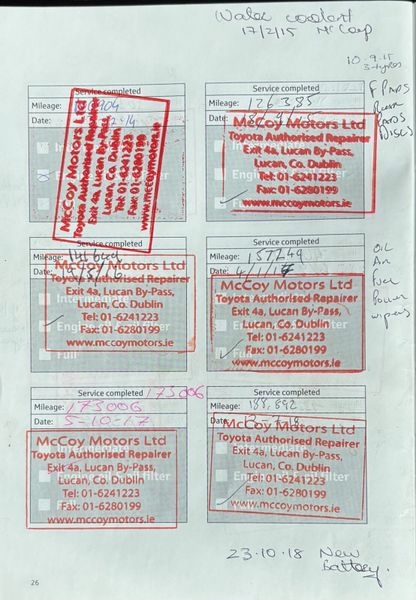 Water coolent
17/2/15 McCoy
10-9-15
3 tyres
Service completed
Mileage:
Date:
McCoy Motors Ltd
Toyota Authorised Repairer
Exit 4a, Lucan By-Pass,
Lucan, Co. Dublin
Tel: 01-6241223
Fax: 01-6280199
www.mccoymotors.ie
Service completed
Mileage: 126385
Date:
McCoy Motors Ltd
Toyota Authorised Repairer
Exit 4a, Lucan By-Pass,
Lucan, Co. Dublin
Tel: 01-6241223
Fax: 01-6280199
www.mccoymotors.ie
F PADS
PADS
DISCS
Service completed
Mileage:
Date:
McCoy Motors Ltd
Toyota Authorised Repairer
Exit 4a, Lucan By-Pass,
Lucan, Co. Dublin
Tel: 01-6241223
Fax: 01-6280199
www.mccoymotors.ie
Service completed
Mileage: 157249
Date:
McCoy Motors Ltd
Toyota Authorised Repairer
Exit 4a, Lucan By-Pass,
Lucan, Co. Dublin
Tel: 01-6241223
Fax: 01-6280199
www.mccoymotors.ie
OIL
Air
Fuel
Pollen
wipers
Service completed 173006
Mileage: 173006
Date: 5-10-17
McCoy Motors Ltd
Toyota Authorised Repairer
Exit 4a, Lucan By-Pass,
Lucan, Co. Dublin
Tel: 01-6241223
Fax: 01-6280199
www.mccoymotors.ie
Service completed
Mileage: 188,892
Date:
McCoy Motors Ltd
Toyota Authorised Repairer
Exit 4a, Lucan By-Pass,
Lucan, Co. Dublin
Tel: 01-6241223
Fax: 01-6280199
www.mccoymotors.ie
23.10.18 New
Battery.
26